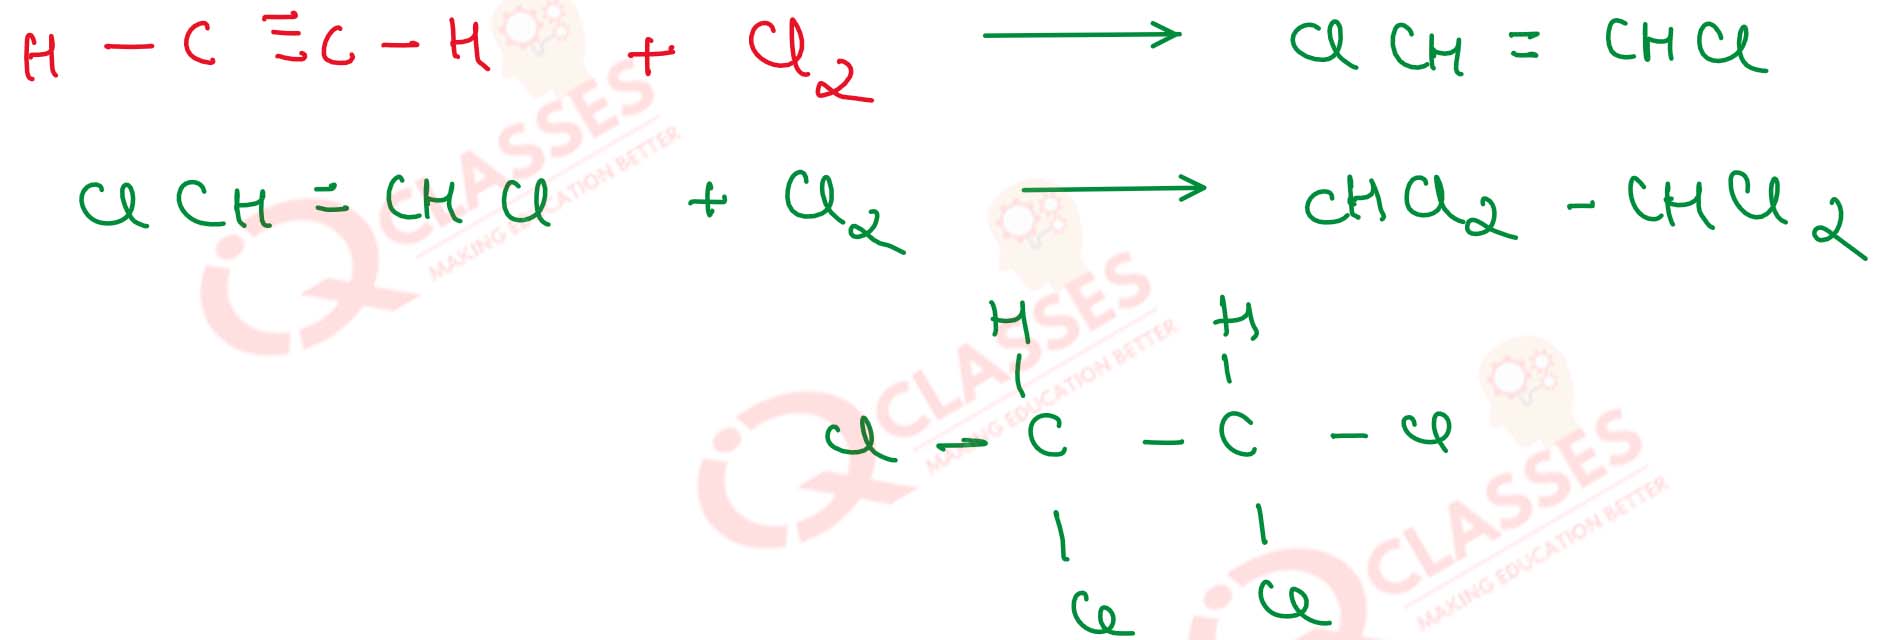 H - C ≡ C - H + Cl2 → ClCH = CHCl
ClCH = CHCl + Cl2 → CHCl2 - CHCl2
H H
Cl - C - C - Cl
Cl Cl
iQ CLASSES
MAKING EDUCATION BETTER
iQ CLASSES
MAKING EDUCATION BETTER
iQ CLASSES
MAKING EDUCATION BETTER